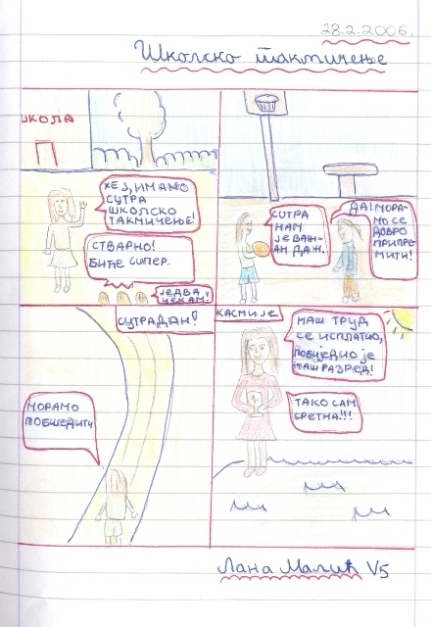 28.2.2006.
Школско такмичење
ШКОЛА
ХЕЈ, ИМАМО
СУТРА
ШКОЛСКО
ТАКМИЧЕЊЕ!
СТВАРНО!
БИЋЕ СУПЕР.
ЈЕДВА
ЧЕКАМ!
СУТРА
НАМ
ЈЕ ВАЖ-
АН ДАН.
ДА! МОРА-
МО СЕ
ДОБРО
ПРИПРЕ-
МИТИ!
СУТРАДАН!
МОРАМО
ПОБИЈЕДИТИ
КАСНИЈЕ
НАШ ТРУД
СЕ ИСПЛАТИО,
ПОБИЈЕДИО ЈЕ
НАШ РАЗРЕД!
ТАКО САМ
СРЕТНА!!!
Лана Малић V5